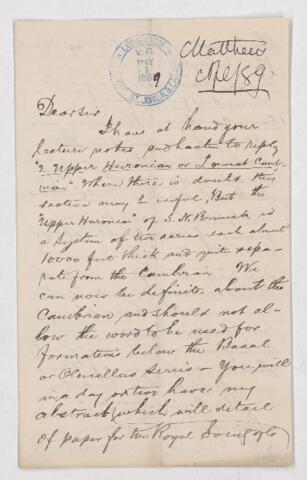 Matthew
Ap/89
V.R.
MAY
1
1889
Dear Sir
I have at hand your
lecture notes and hasten to reply
"? Upper Huronian or Lowest Camb-
rian" Where there is doubt this
section may be useful, But the
"Upper Huronian" of S. N. Brunswick is
a system of two series each about
10000 feet thick and quite sepa-
rate from the Cambrian We
can now be definite about the
Cambrian and should not al-
low the word to be used for
formations below the Basal
or Olenellus Series — You will
in a day or two have my
abstract (which will detail
of paper for the Royal Society of